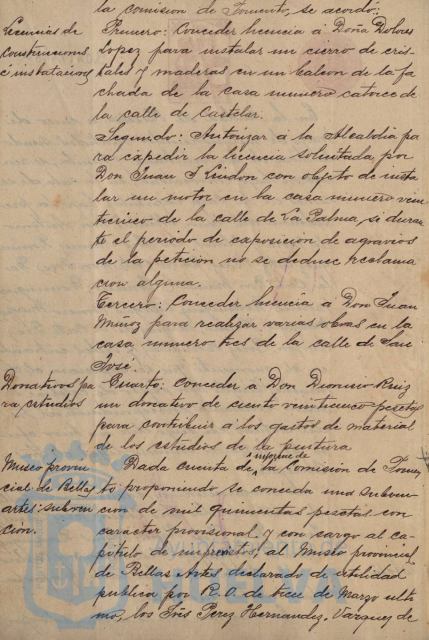 la comision de Fomento, se acordó:
Licencias de
construcciones
é instalaciones
Primero: Conceder licencia á Doña Dolores
Lopez para instalar un cierro de cris-
tales y maderas en un balcon de la fa
chada de la casa numero catorce de
la calle de Castelar.
Segundo: Autorizar á la Alcaldia pa
ra expedir la licencia solicitada por
Don Juan J. con objeto de insta
lar un motor en la casa numero vein
ticinco de la calle de La Palma, si duran
te el periodo de exposicion de agravios
de la peticion no se deduce reclama
cion alguna.
Tercero: Conceder licencia á Don Juan
Muñoz para realizar varias obras en la
casa numero tres de la calle de San
José
Donativos pa
ra estudios
Cuarto: Conceder á Don Dionisio Ruiz
un donativo de ciento veinticinco pesetas
para contribuir á los gastos de material
de los estudios de la pintura
Museo provin
cial de Bellas
artes: subven
cion.
Dada cuenta de informe de la Comision de Fomen
to proponiendo se conceda una subven
cion de mil quinientas pesetas con
carácter provisional y con cargo al ca-
pítulo de imprevistos, al Museo provincial
de Bellas Artes declarado de utilidad
publica por R. O. de trece de Marzo ulti
mo, los Sres Perez Hernandez, Vazquez de